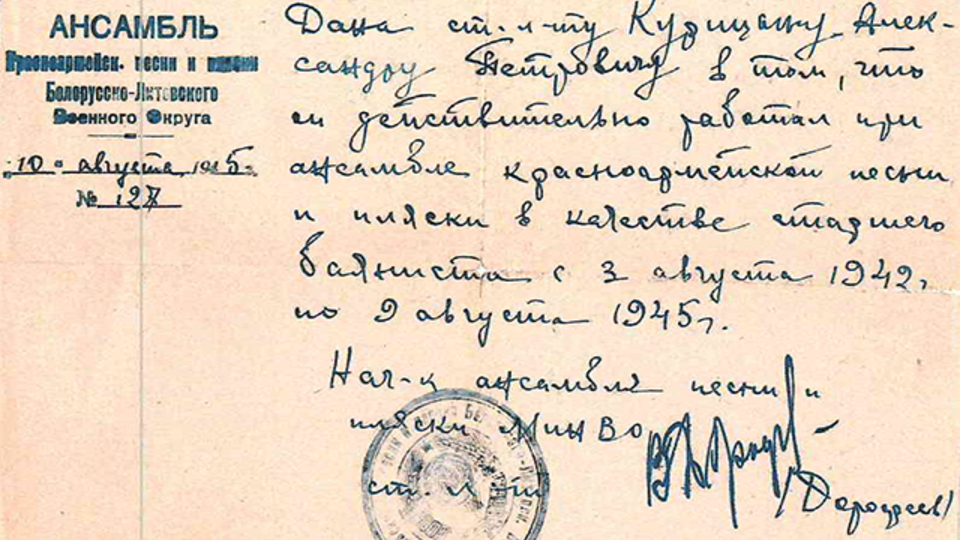 АНСАМБЛЬ
Красноармейск. песни и пляски
Белорусско-Литовского
Военного Округа
„10" августа 1945 г.
№ 127
Дана ст. л-ту Курицыну Алек-
сандру Петровичу в том, что
он действительно работал при
ансамбле красноармейской песни
и пляски в качестве старшего
баяниста с 3 августа 1942 г.
по 9 августа 1945 г.
Нач-к ансамбля песни и
пляски МинВО
ст. л-т
/Дорофеев/